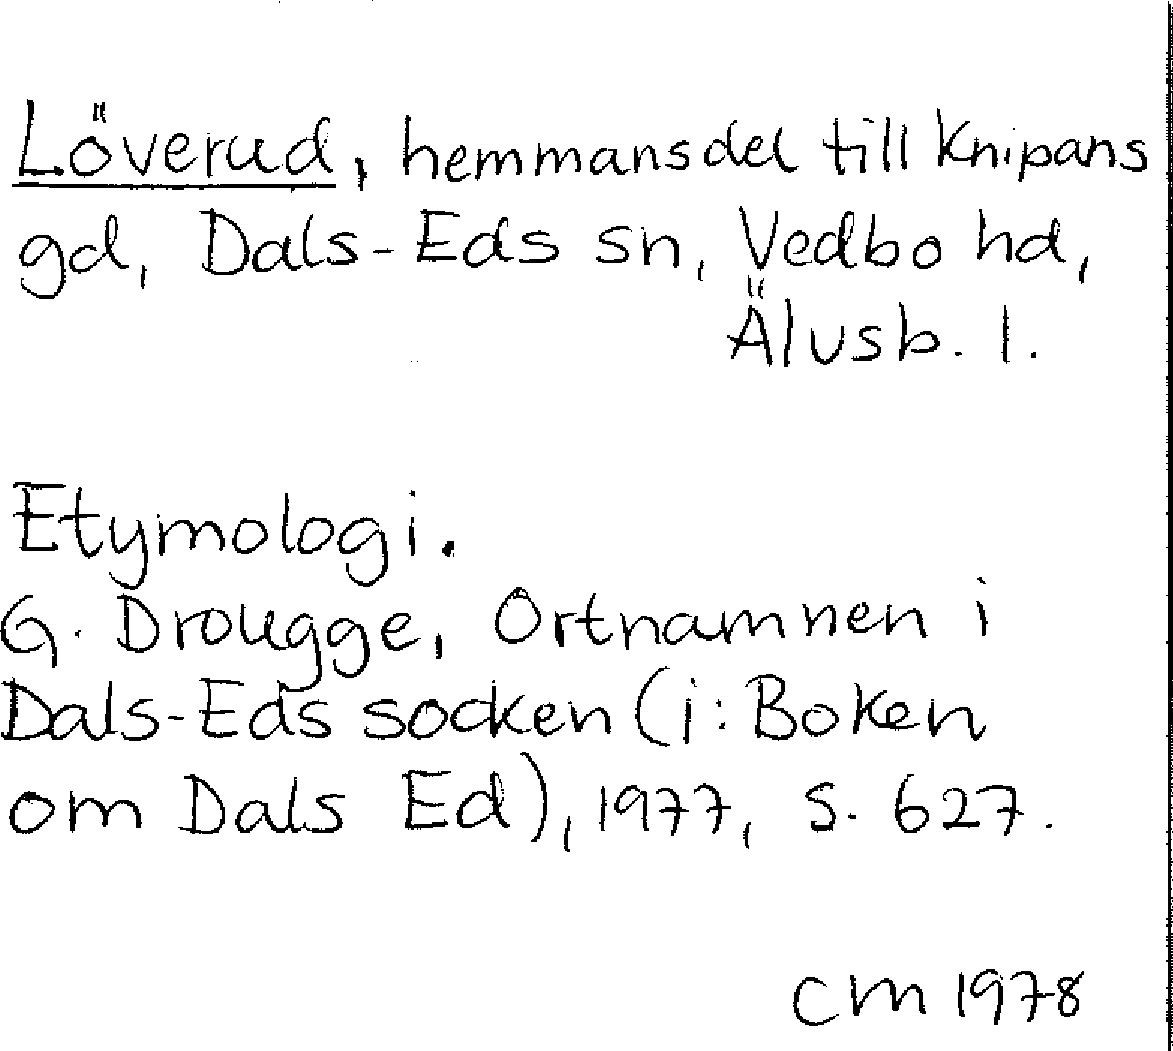 Löverud, hemmansdel till Knipans
gd, Dals-Eds sn, Vedbo hd,
Älvsb. l.
Etymologi.
G. Drougge, Ortnamnen i
Dals-Eds socken (i: Boken
om Dals Ed), 1977, s. 627.
CM 1978